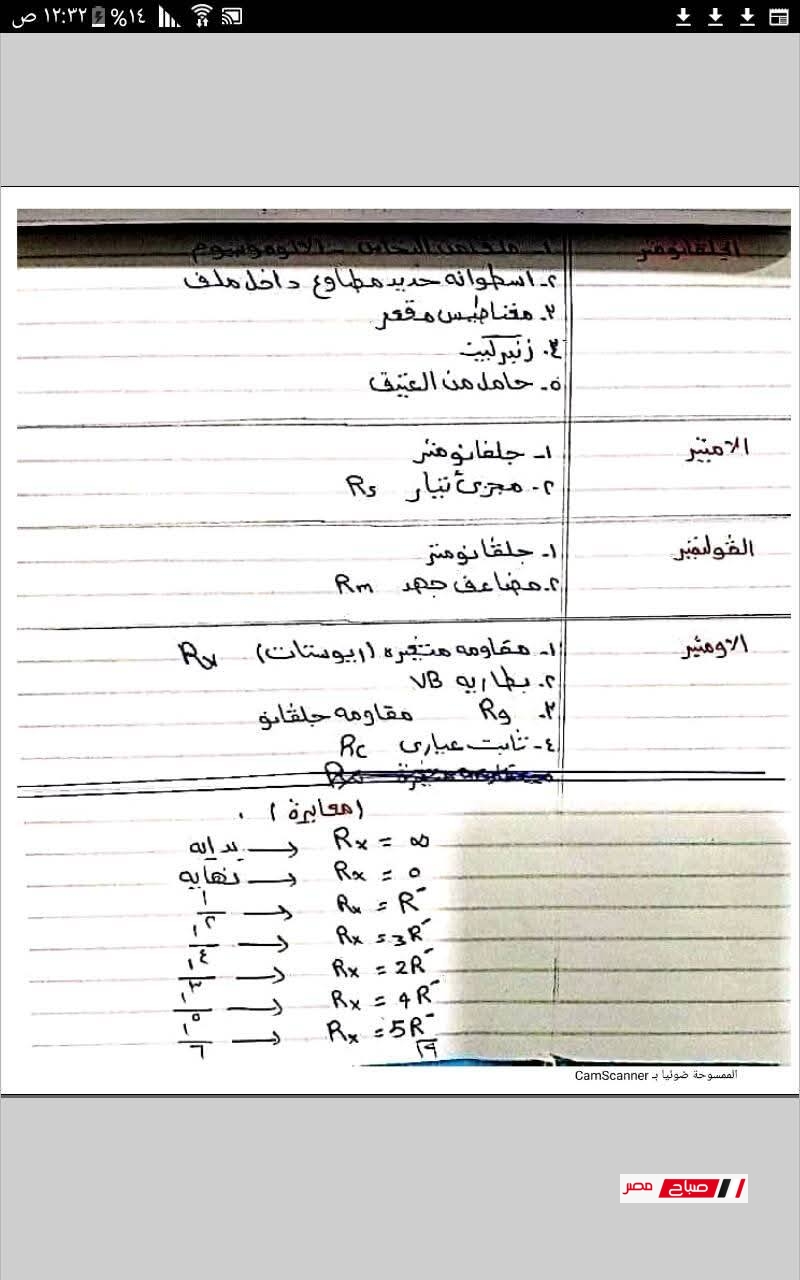 ١٢:٣٢ ص ١٤%
الجلفانومتر
١- ملف من النحاس - الالومونيوم
٢- اسطوانه حديد مطاوع داخل ملف
٣- مغناطيس مقعر
٤- زنبركين
٥- حامل من العقيق
الاميتر
١- جلفانومتر
٢- مجزئ تيار Rs
الڤولتميتر
١- جلڤانومتر
٢- مضاعف جهد Rm
الاوميتر
١- مقاومه متغيره (ريوستات) Rv
٢- بطاريه VB
٣- Rg مقاومه جلڤانو
٤- ثابت عيارى Rc
(معايرة)
Rx = ∞ → بدايه
Rx = 0 → نهايه
Rx = R⁻ → ١/٢
Rx = 3R⁻ → ١/٤
Rx = 2R⁻ → ١/٣
Rx = 4R⁻ → ١/٥
Rx = 5R⁻ → ١/٦
١٩
الممسوحة ضوئيا بـ CamScanner
صباح مصر